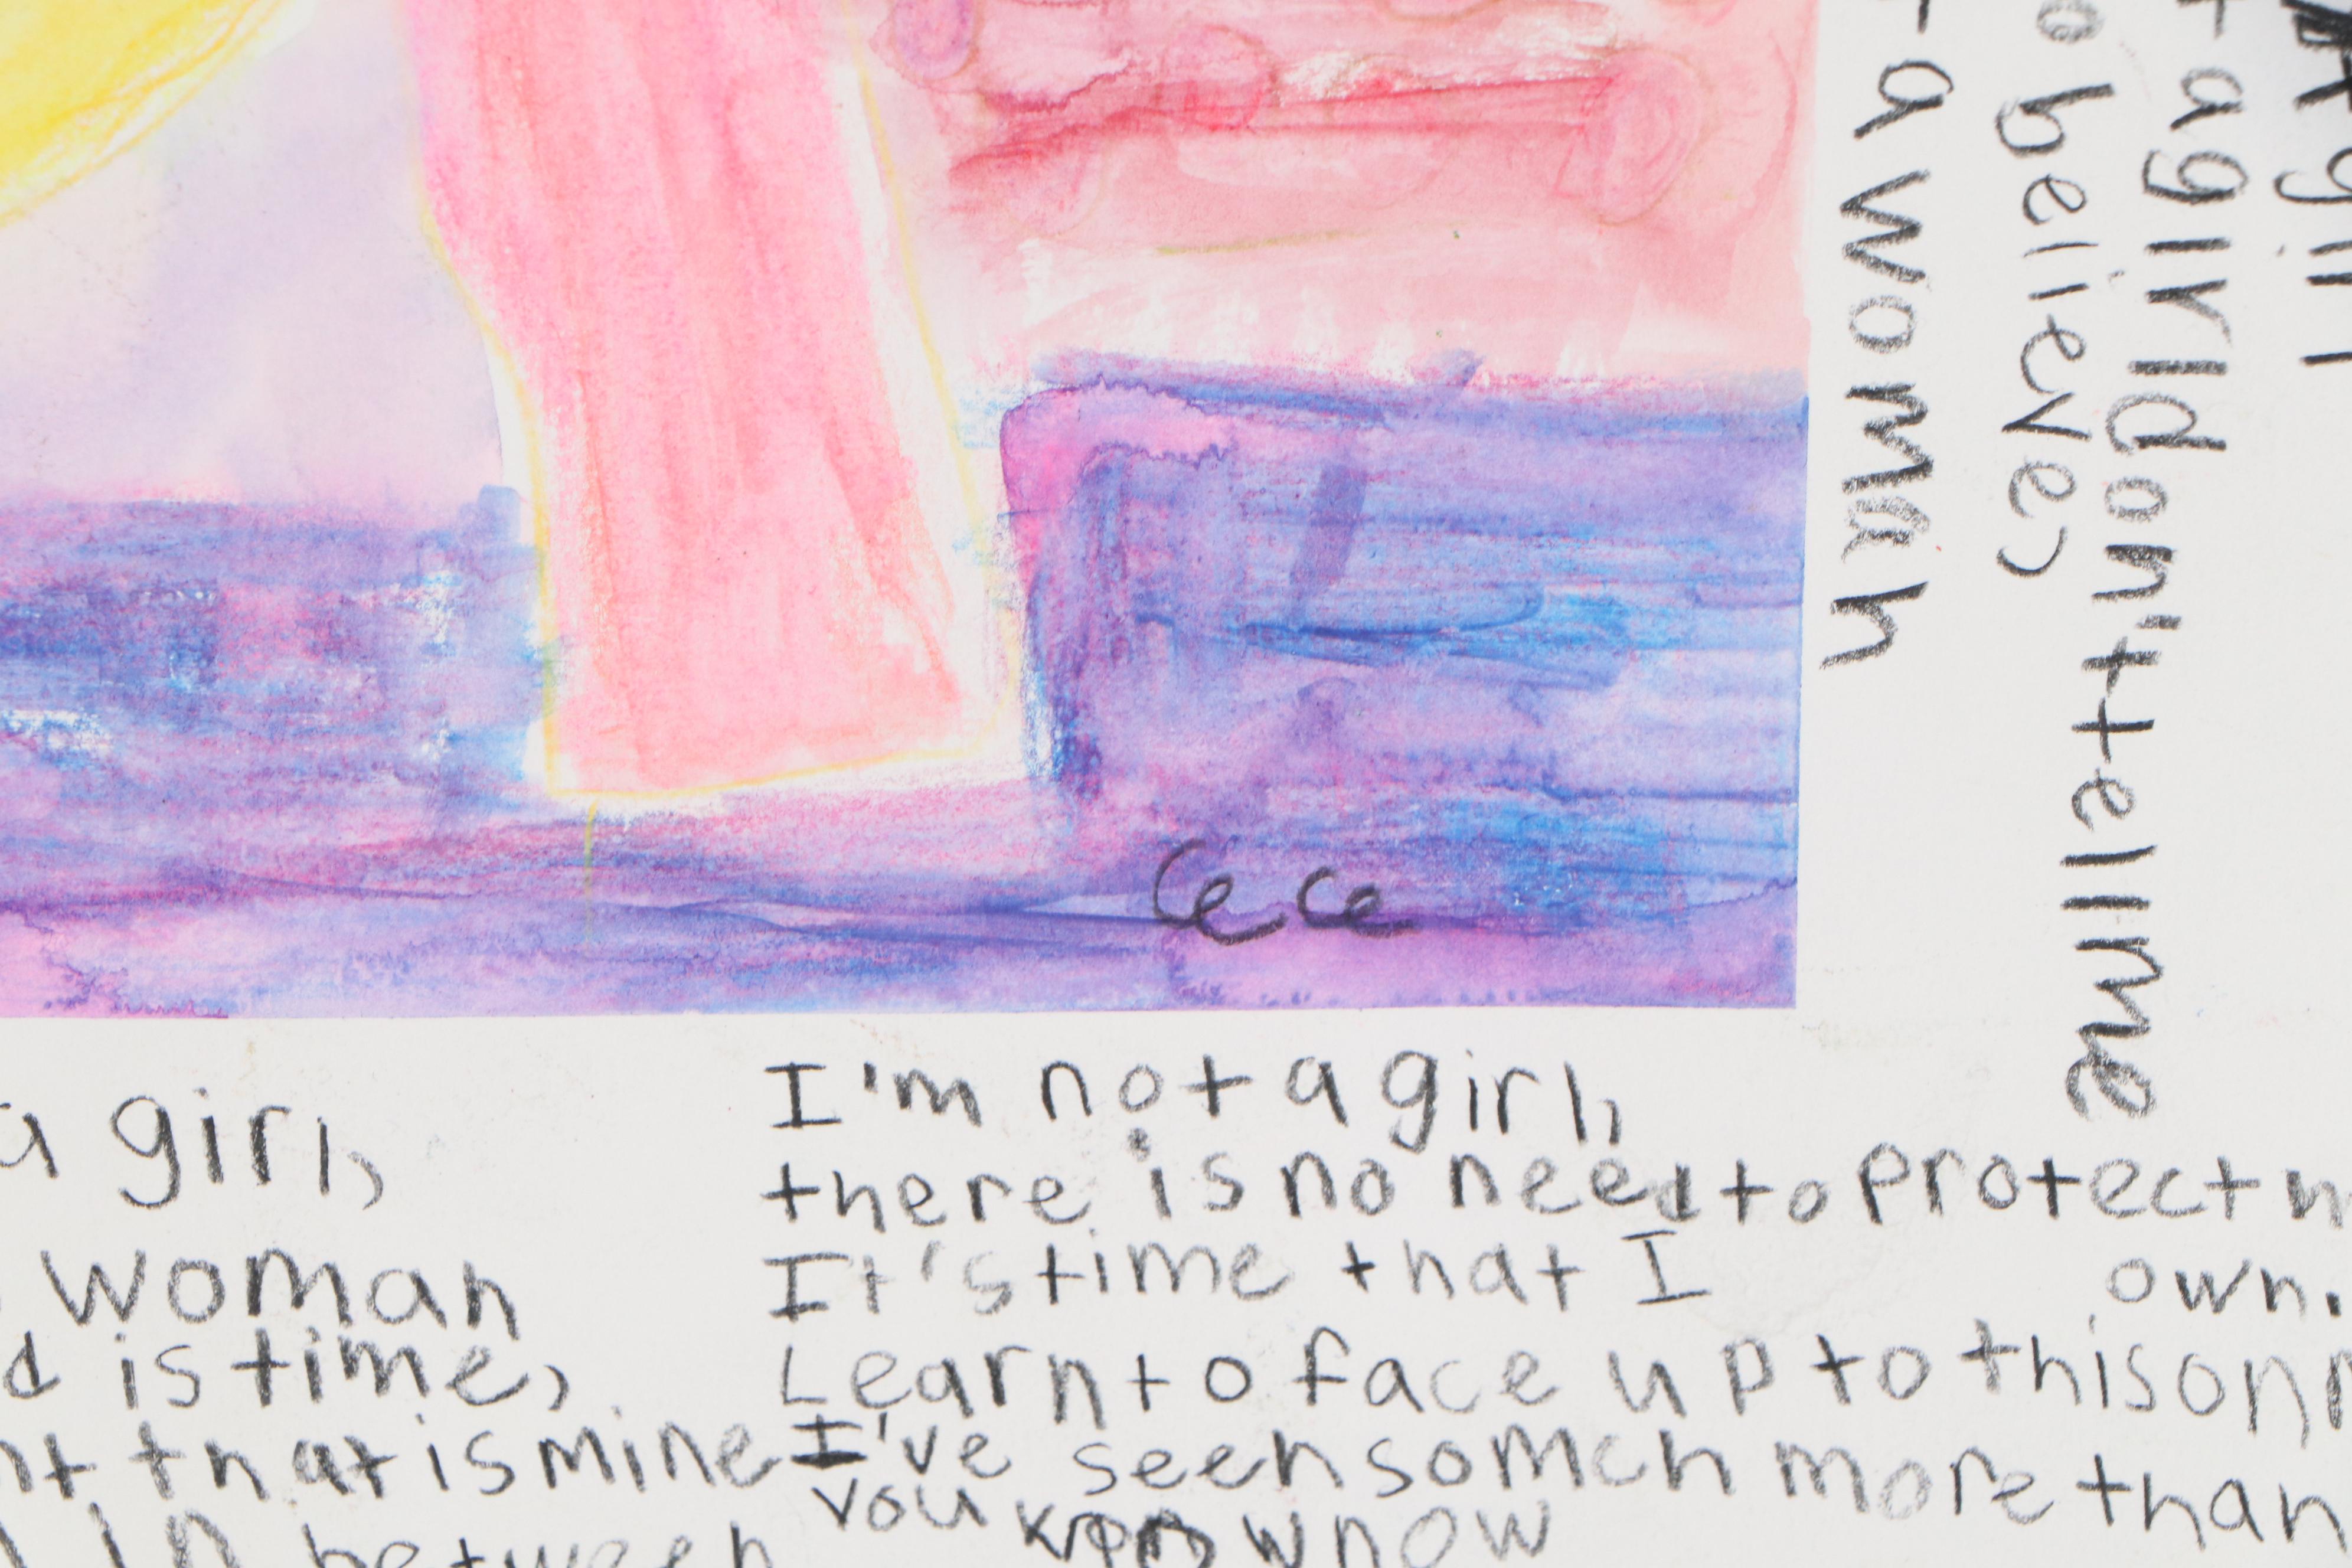 Cece
I'm not a girl,
there is no need to protect
It's time that I
own.
Learn to face up to this on
I've seen so mch more than
you know now
a girl,
woman
is time,
that is mine
in between
a woman
to believe,
a girl don't tell me
girl